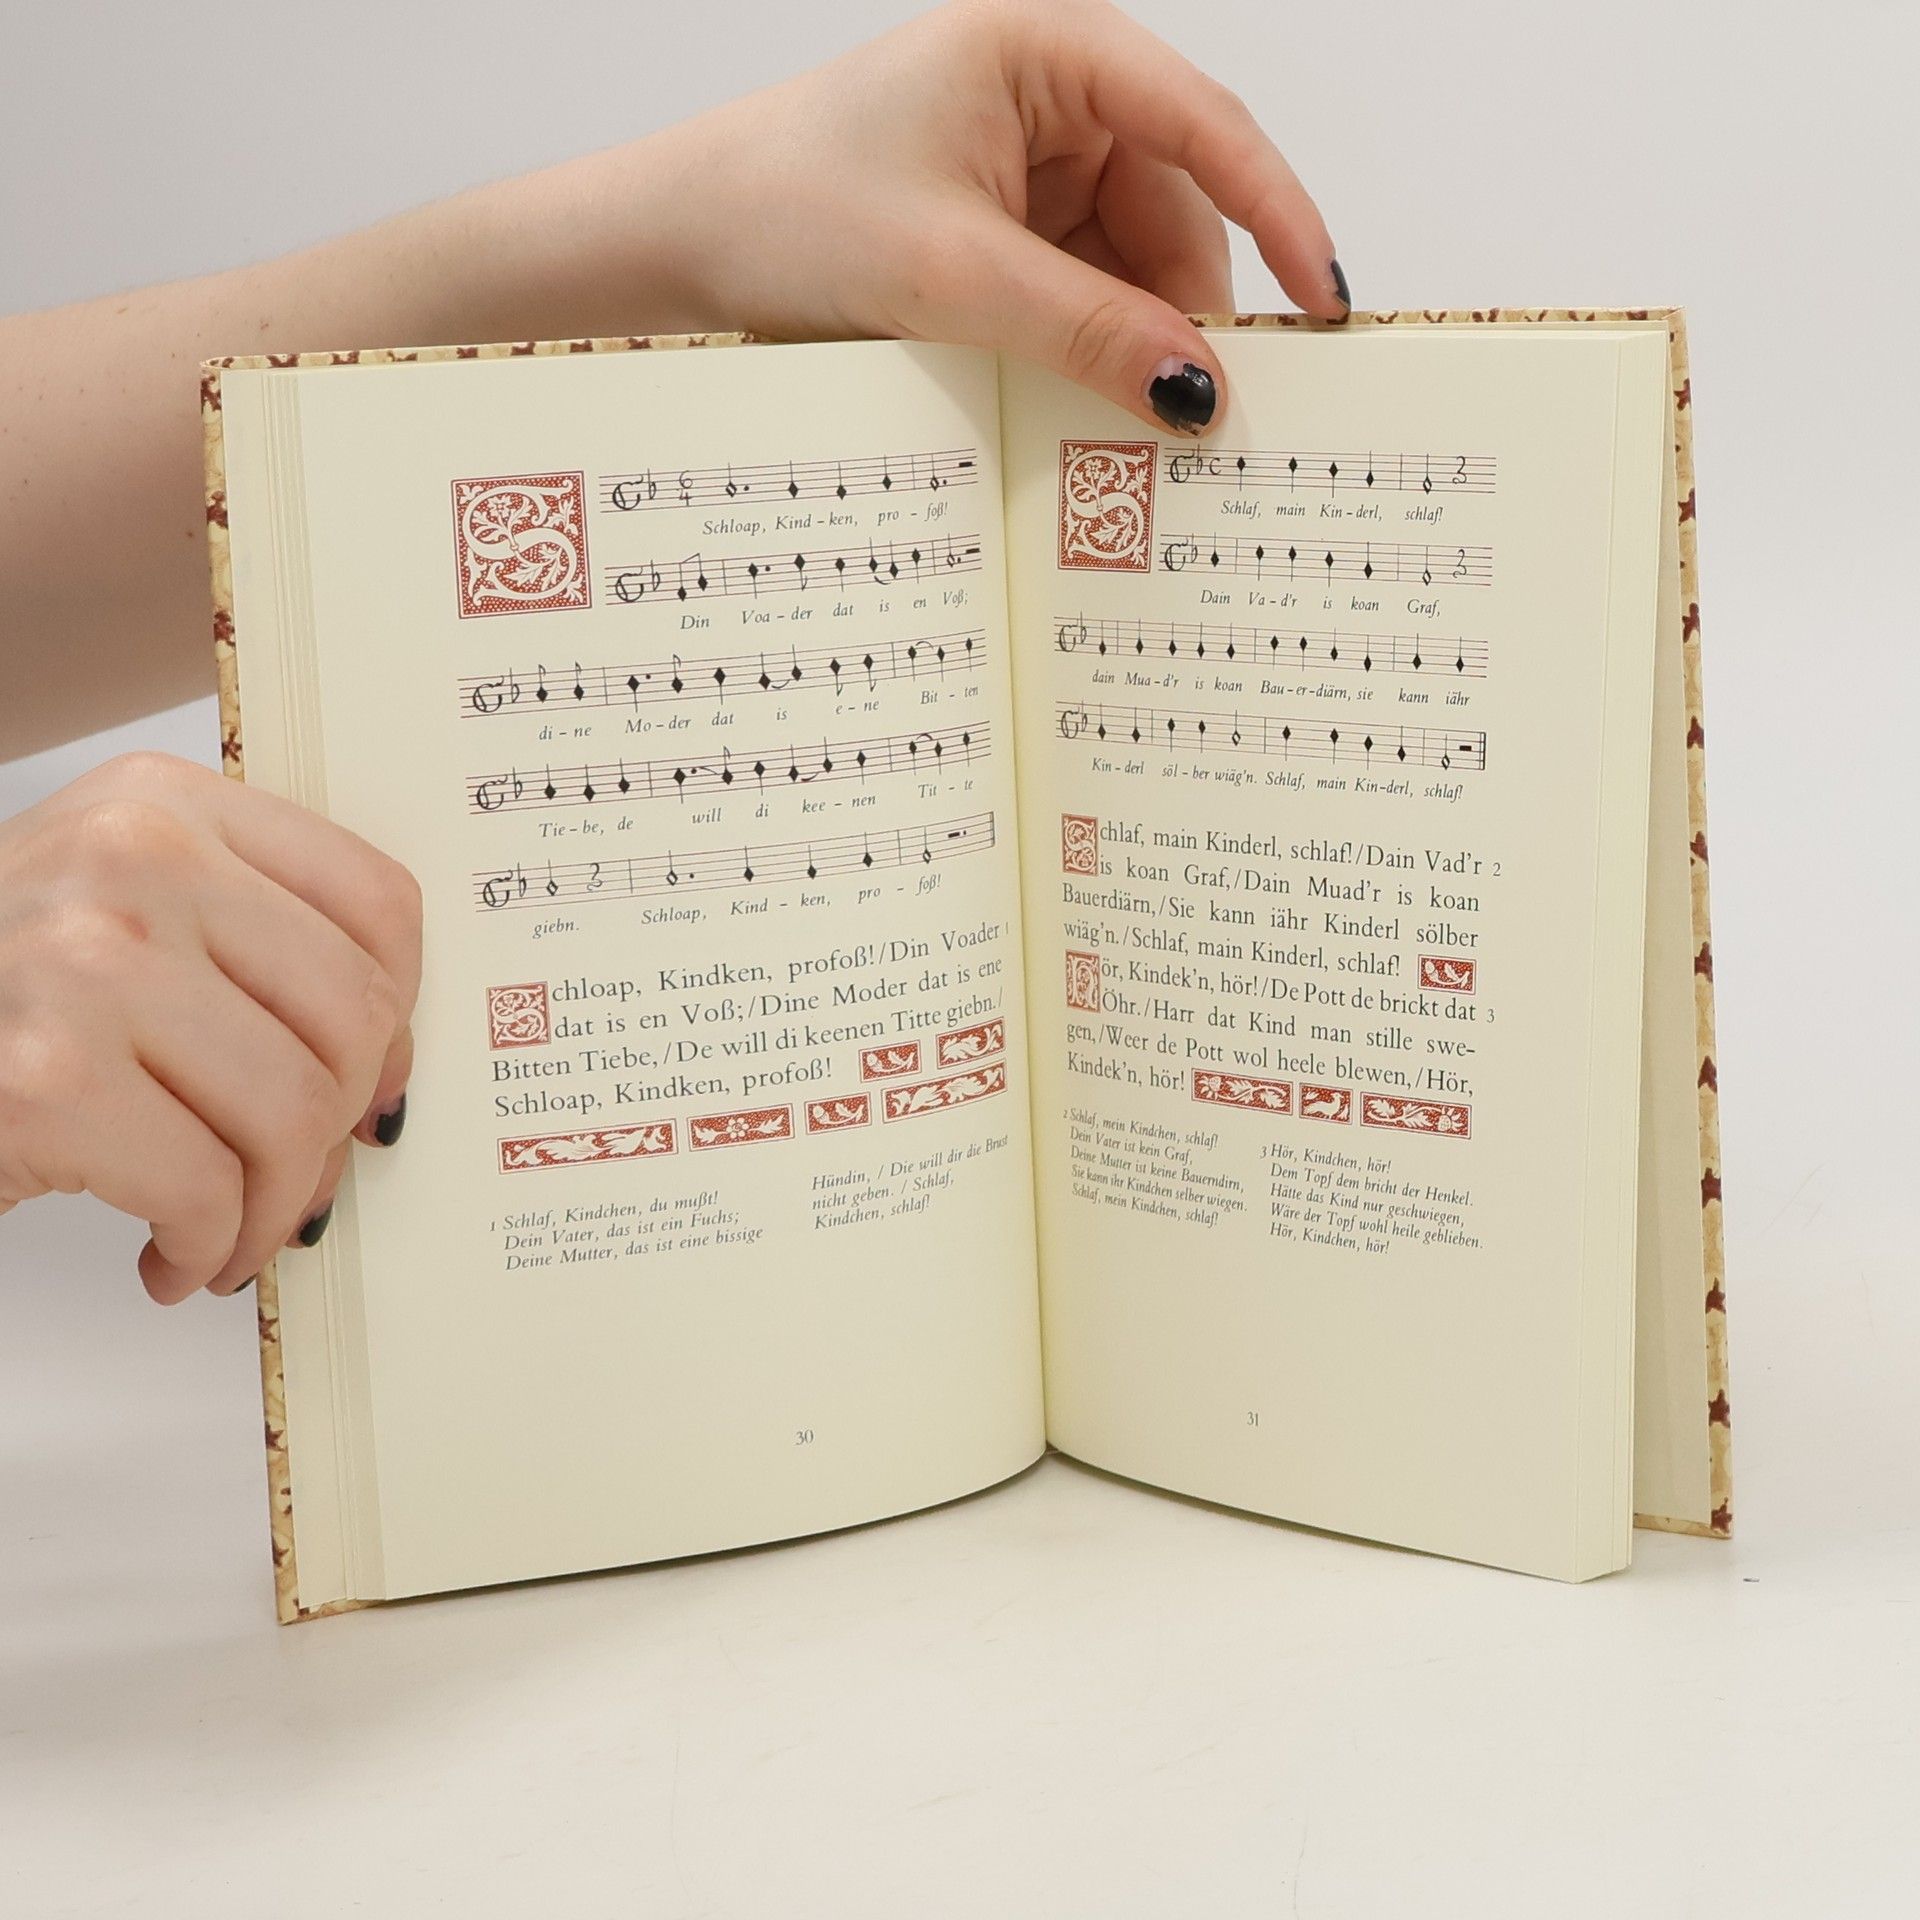 Schloap, Kind – ken, pro – foß!
Din Voa – der dat is en Voß;
di – ne Mo – der dat is e – ne Bit – ten
Tie – be, de will di kee – nen Tit – te
giebn. Schloap, Kind – ken, pro – foß!
Schloap, Kindken, profoß!/Din Voader 1
dat is en Voß;/Dine Moder dat is ene
Bitten Tiebe,/De will di keenen Titte giebn./
Schloap, Kindken, profoß!
1 Schlaf, Kindchen, du mußt!
Dein Vater, das ist ein Fuchs;
Deine Mutter, das ist eine bissige
Hündin, / Die will dir die Brust
nicht geben. / Schlaf,
Kindchen, schlaf!
30
6
4
S
S
C
Schlaf, main Kin – derl, schlaf!
Dain Va – d'r is koan Graf,
dain Mua – d'r is koan Bau – er – diärn, sie kann iähr
Kin – derl söl – ber wiäg'n. Schlaf, main Kin – derl, schlaf!
Schlaf, main Kinderl, schlaf!/Dain Vad'r 2
is koan Graf,/Dain Muad'r is koan
Bauerdiärn,/Sie kann iähr Kinderl sölber
wiäg'n./Schlaf, main Kinderl, schlaf!
Hör, Kindek'n, hör!/De Pott de brickt dat 3
Öhr./Harr dat Kind man stille swe–
gen,/Weer de Pott wol heele blewen,/Hör,
Kindek'n, hör!
2 Schlaf, mein Kindchen, schlaf!
Dein Vater ist kein Graf,
Deine Mutter ist keine Bauerndirn,
Sie kann ihr Kindchen selber wiegen.
Schlaf, mein Kindchen, schlaf!
3 Hör, Kindchen, hör!
Dem Topf dem bricht der Henkel.
Hätte das Kind nur geschwiegen,
Wäre der Topf wohl heile geblieben.
Hör, Kindchen, hör!
31